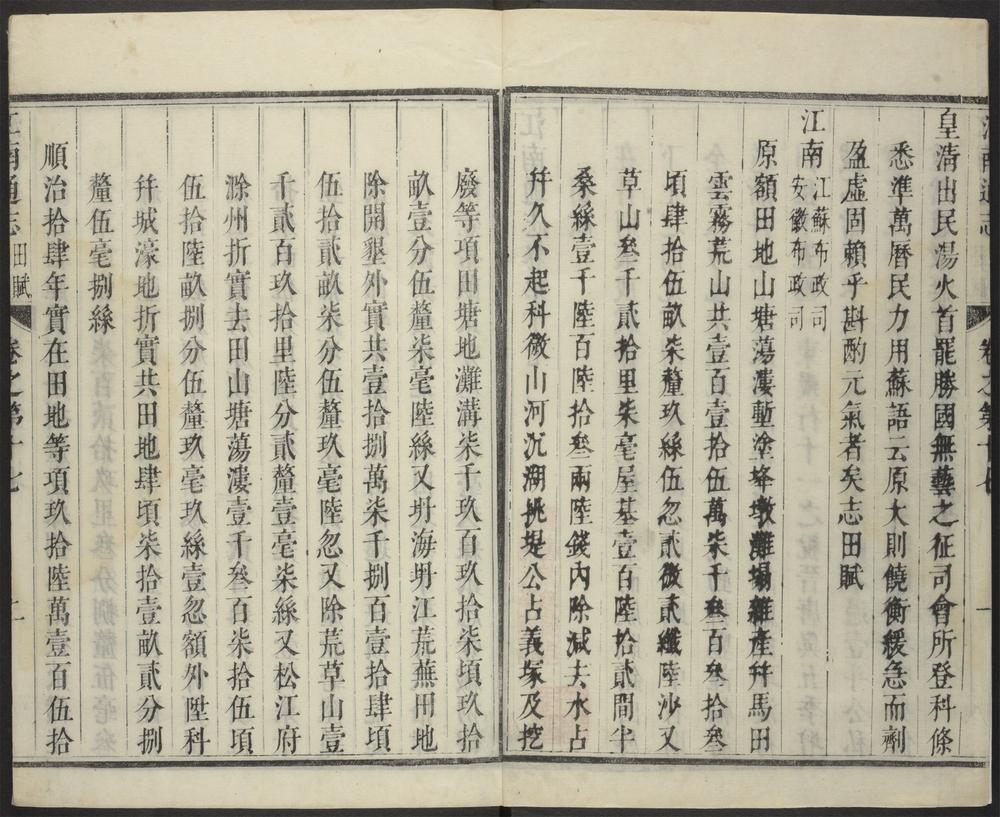 皇清出民湯火首罷勝國無藝之征司會所登科條
悉準萬曆民力用蘇語云原大則饒衡緩急而劑
盈虛固賴乎斟酌元氣者矣志田賦
江南
江蘇布政司
安徽布政司
原額田地山塘蕩漊塹塗埄墩灘塲雜產幷馬田
雲霧荒山共壹百壹拾伍萬柒千叁百叁拾叁
頃肆拾伍畝柒釐玖絲伍忽貳微貳纖陸沙又
草山叁千貳拾里柒毫屋基壹百陸拾貳間半
桑絲壹千陸百陸拾叁兩陸錢內除減去水占
幷久不起科徵山河沉湖挑堤公占義塚及挖
廢等項田塘地灘溝柒千玖百玖拾柒頃玖拾
畝壹分伍釐柒毫陸絲又坍海坍江荒蕪田地
除開墾外實共壹拾捌萬柒千捌百壹拾肆頃
伍拾貳畝柒分伍釐玖毫陸忽又除荒草山壹
千貳百玖拾里陸分貳釐壹毫柒絲又松江府
滁州折實去田山塘蕩漊壹千叁百柒拾伍頃
伍拾陸畝捌分伍釐玖毫玖絲壹忽額外陞科
幷城濠地折實共田地肆頃柒拾壹畝貳分捌
釐伍毫捌絲
順治拾肆年實在田地等項玖拾陸萬壹百伍拾
江南通志 田賦 卷之第十七